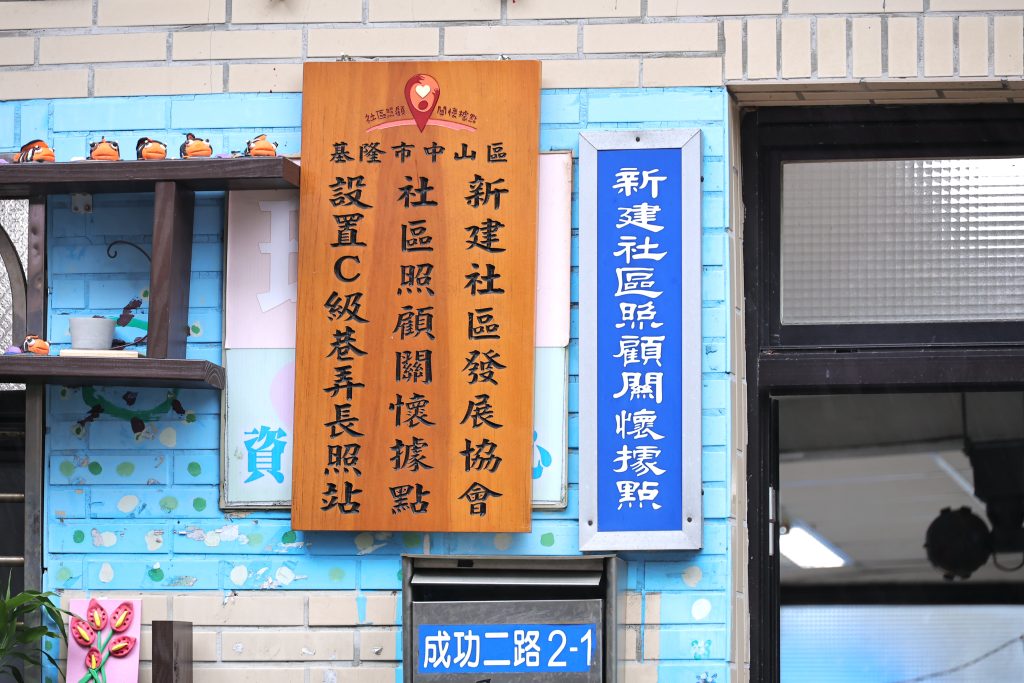 社區照顧 關懷據點
基隆市中山區
新建社區發展協會
社區照顧關懷據點
設置C級巷弄長照站
新建社區照顧關懷據點
資
心
成功二路2-1